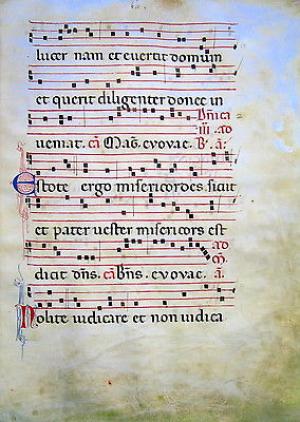 lucer nam et evertit domum
et querit diligenter donec in
Dnica
iii. ad
veniat. cā Mag. evovae. B. ā.
Estote ergo misericordes sicut
et pater vester misericors est
ad
dicit dns. cā Bns. evovae. ā.
Nolite iudicare et non iudica